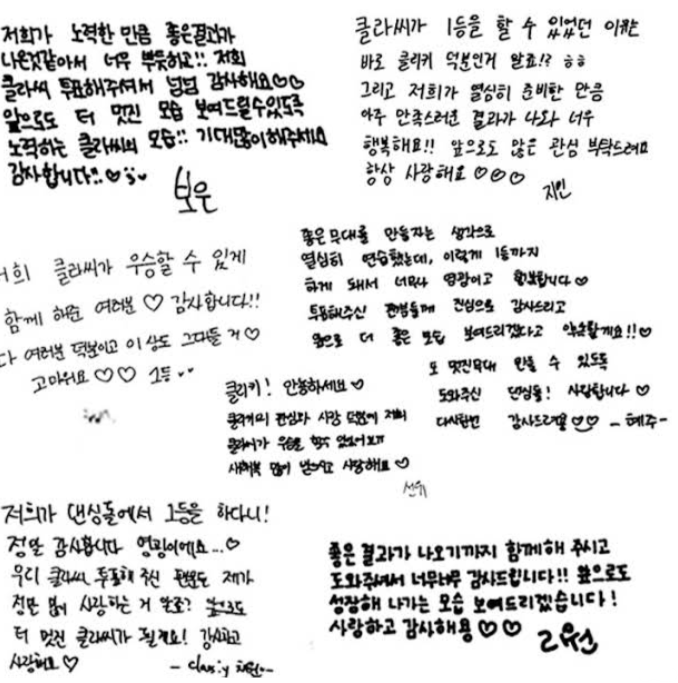 저희가 노력한 만큼 좋은결과가
나온것같아서 너무 뿌듯하고!! 저희
클라씨 투표해주셔서 넘넘 감사해요♡♡
앞으로도 더 멋진 모습 보여드릴수있도록
노력하는 클라씨의 모습!! 기대많이해주세요
감사합니다!!♡
보은
클라씨가 1등을 할 수 있었던 이유는
바로 클리키 덕분인거 알죠!? ㅎㅎ
그리고 저희가 열심히 준비한 만큼
아주 만족스러운 결과가 나와 너무
행복해요!! 앞으로도 많은 관심 부탁드려요
항상 사랑해요 ♡♡♡
지민
저희 클라씨가 우승할 수 있게
함께 해준 여러분 ♡ 감사합니다!!
다 여러분 덕분이고 이 상도 그대들 거♡
고마워요♡♡ 1등
좋은무대를 만들자는 생각으로
열심히 연습했는데, 이렇게 1등까지
하게 돼서 너무나 영광이고 행복합니다♡
투표해주신 팬분들께 진심으로 감사드리고
앞으로 더 좋은 모습 보여드리겠다고 약속할게요!!♡
또 멋진무대 만들 수 있도록
도와주신 댄싱돌! 사랑합니다♡
다시한번 감사드려용♡♡ -혜주-
클리키! 안녕하세요♡
클리키의 관심과 사랑 덕분에 저희
클라씨가 우승을 할수 있었어요!!
새해복 많이 받으시고 사랑해요♡
선유
저희가 댄싱돌에서 1등을 하다니!
정말 감사합니다 영광이에요...♡
우리 클라씨 투표해 주신 팬분들 제가
정말 많이 사랑하는 거 알죠? 앞으로도
더 멋진 클라씨가 될게요! 감사하고
사랑해요♡ - clas:y 채원
좋은 결과가 나오기까지 함께해 주시고
도와주셔서 너무너무 감사드립니다!! 앞으로도
성장해 나가는 모습 보여드리겠습니다!
사랑하고 감사해용♡♡ 리원